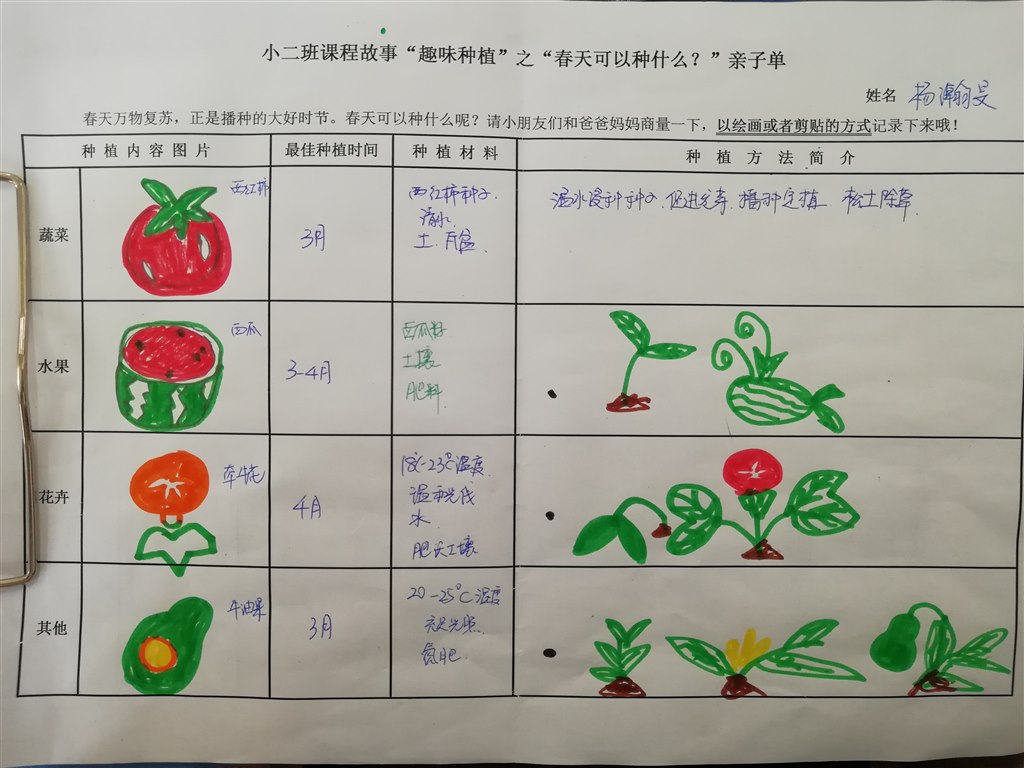 小二班课程故事“趣味种植”之“春天可以种什么？”亲子单
姓名 杨瀚旻
春天万物复苏，正是播种的大好时节。春天可以种什么呢？请小朋友们和爸爸妈妈商量一下，以绘画或者剪贴的方式记录下来哦！
种植内容图片 最佳种植时间 种植材料 种植方法简介
蔬菜
西红柿
3月
西红柿种子
清水
土、花盆
温水浸种种子、促进完芽、播种定植 松土除草
水果
西瓜
3-4月
西瓜籽
土壤
肥料
花卉
牵牛花
4月
18℃-23℃温度
温和光线
水
肥沃土壤
其他
牛油果
3月
20-25℃温度
充足光照
氮肥